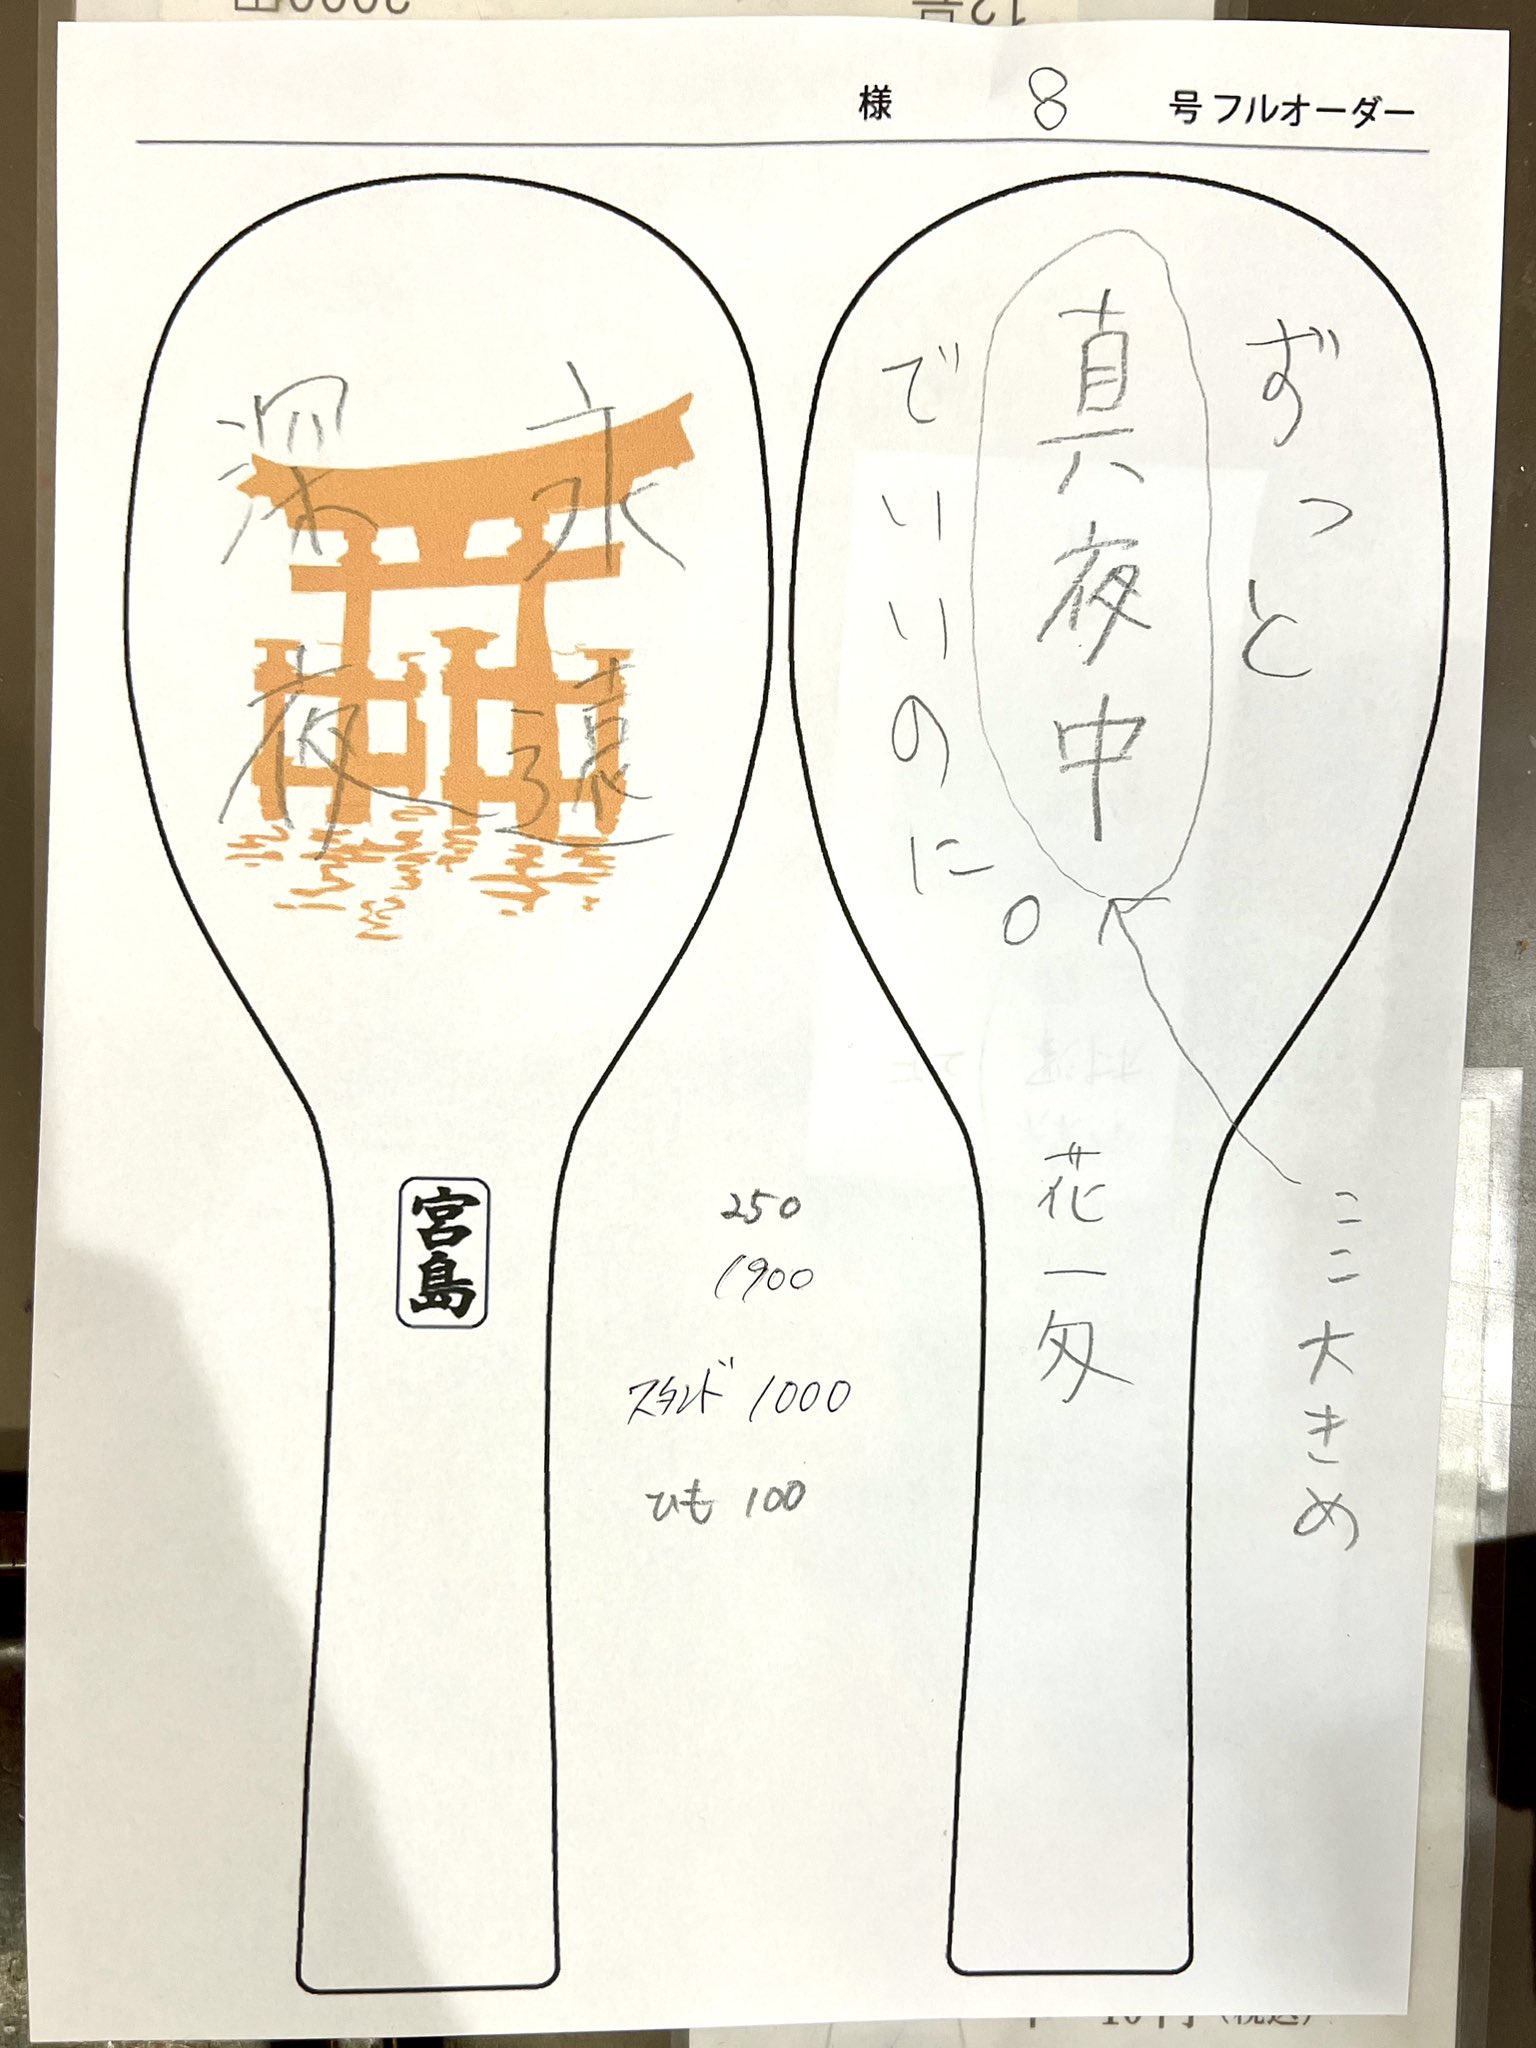 様 8 号フルオーダー
永遠
深夜
宮島
ずっと
真夜中
でいいのに。
花一匁
ここ大きめ
250
1900
スタンド 1000
ひも 100